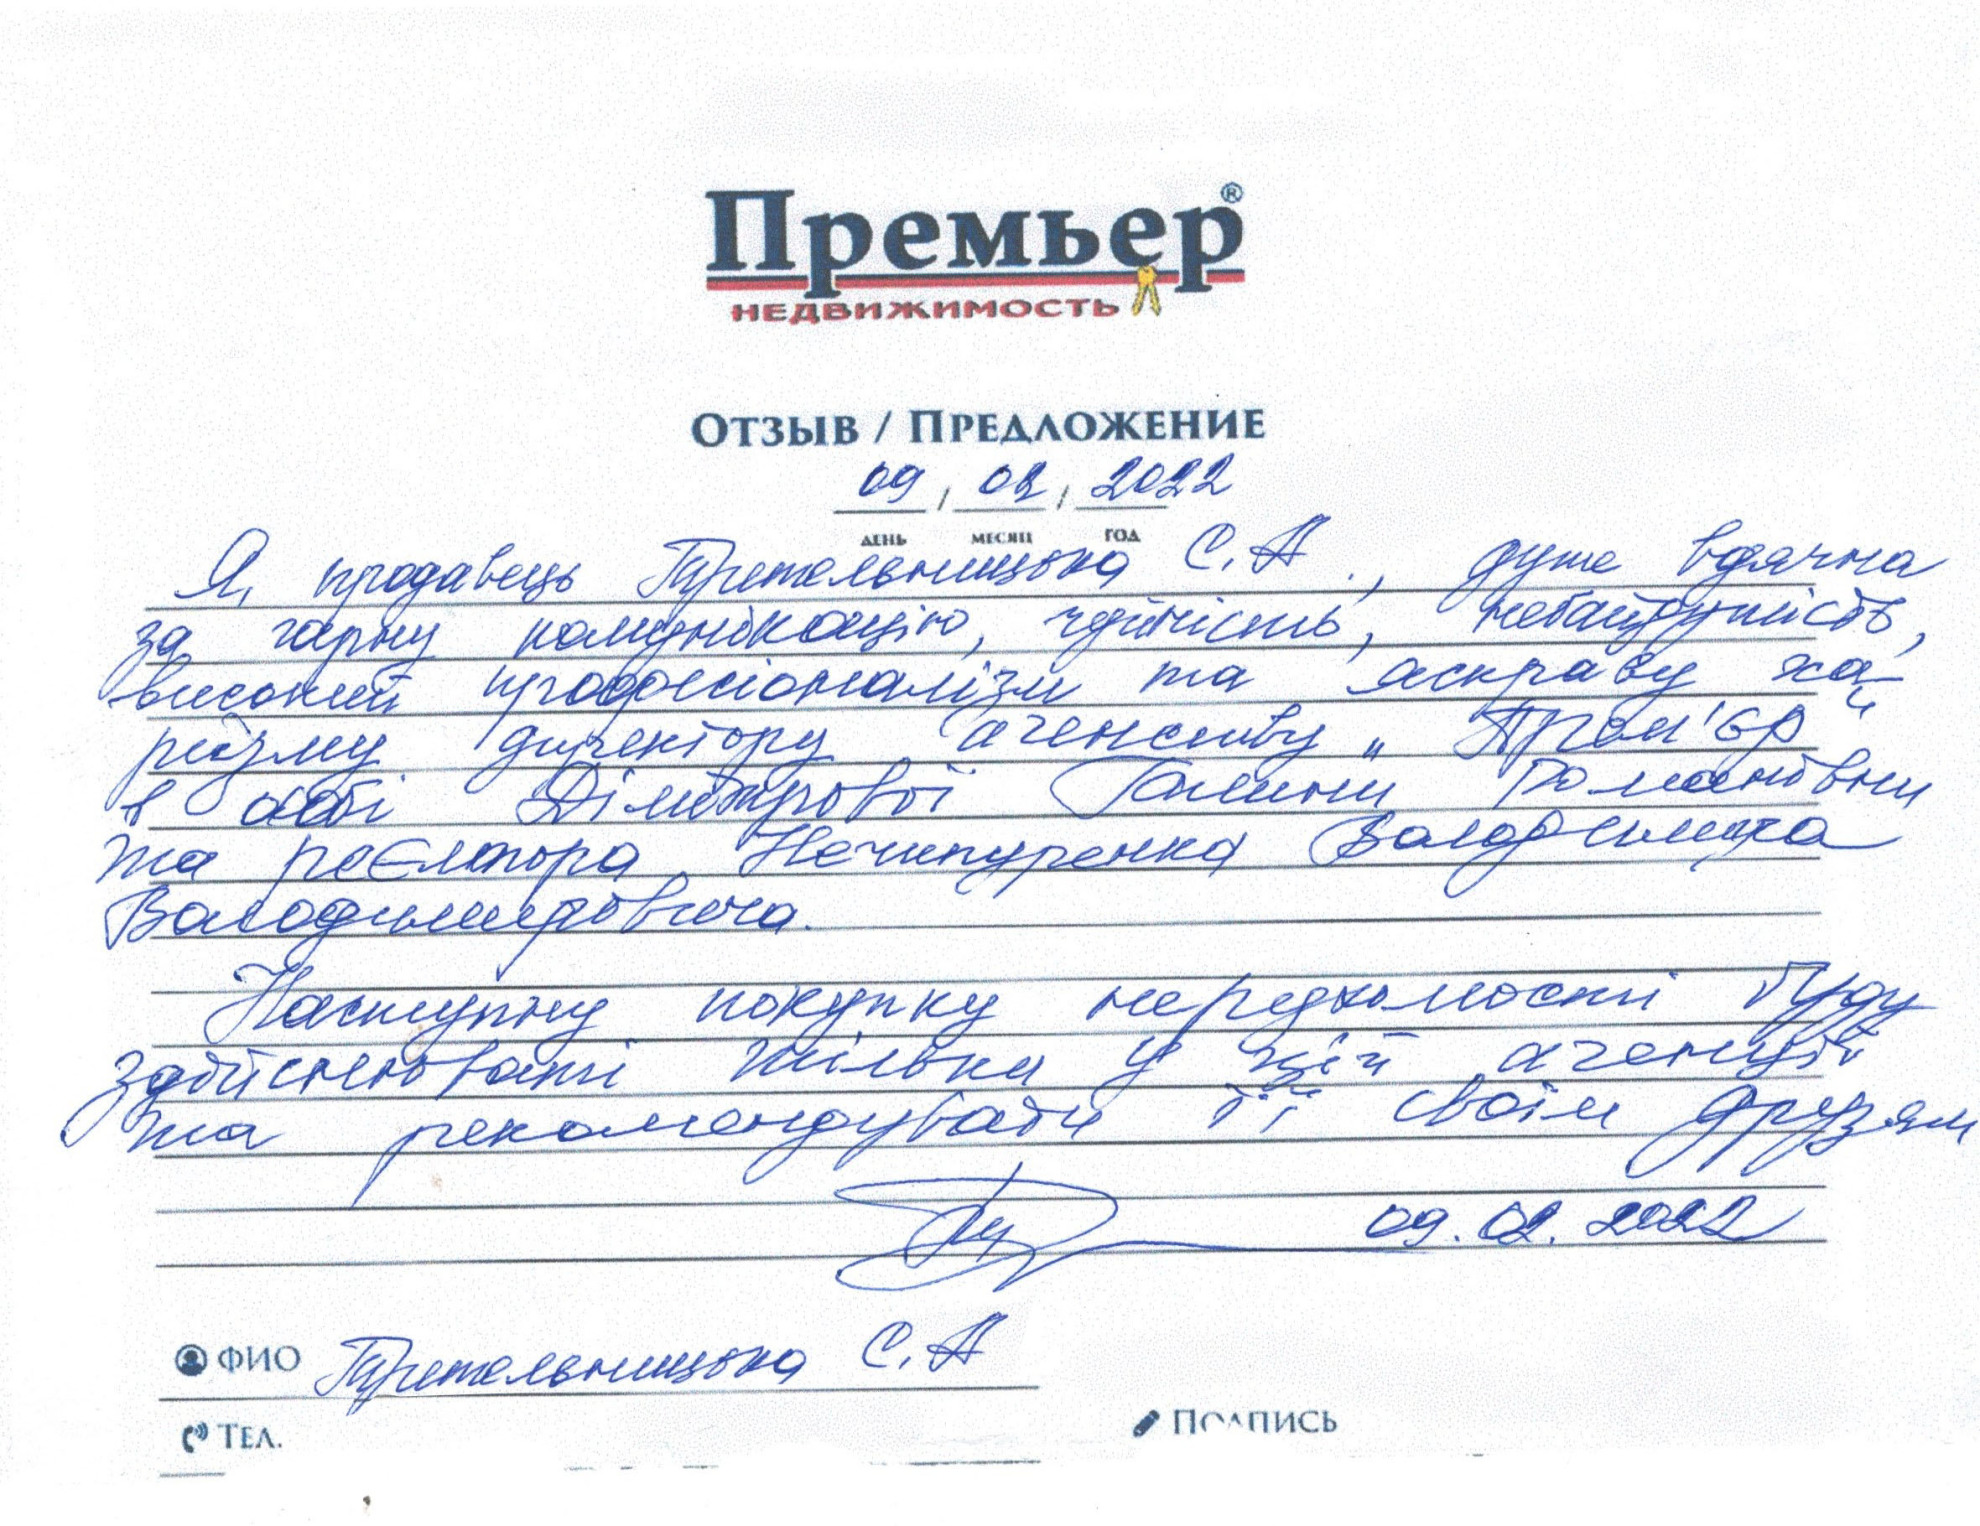 Премьер®
НЕДВИЖИМОСТЬ
ОТЗЫВ / ПРЕДЛОЖЕНИЕ
09 / 02 / 2022
ДЕНЬ МЕСЯЦ ГОД
Я, продавець С. А., дуже вдячна
за гарну комунікацію, чуйність, небайдужість,
високий професіоналізм та яскраву ха-
ризму директору агенству „Прем'єр“
в особі Дімітрової Галини Романівни
та рєєлтора Нечипуренка Володимира
Володимировича.
Наступну покупку нерухомості буду
здійснювати тільки у цій агенції
та рекомендувати її своїм друзям
09.02.2022
ФИО С. А
ТЕЛ.
ПОДПИСЬ